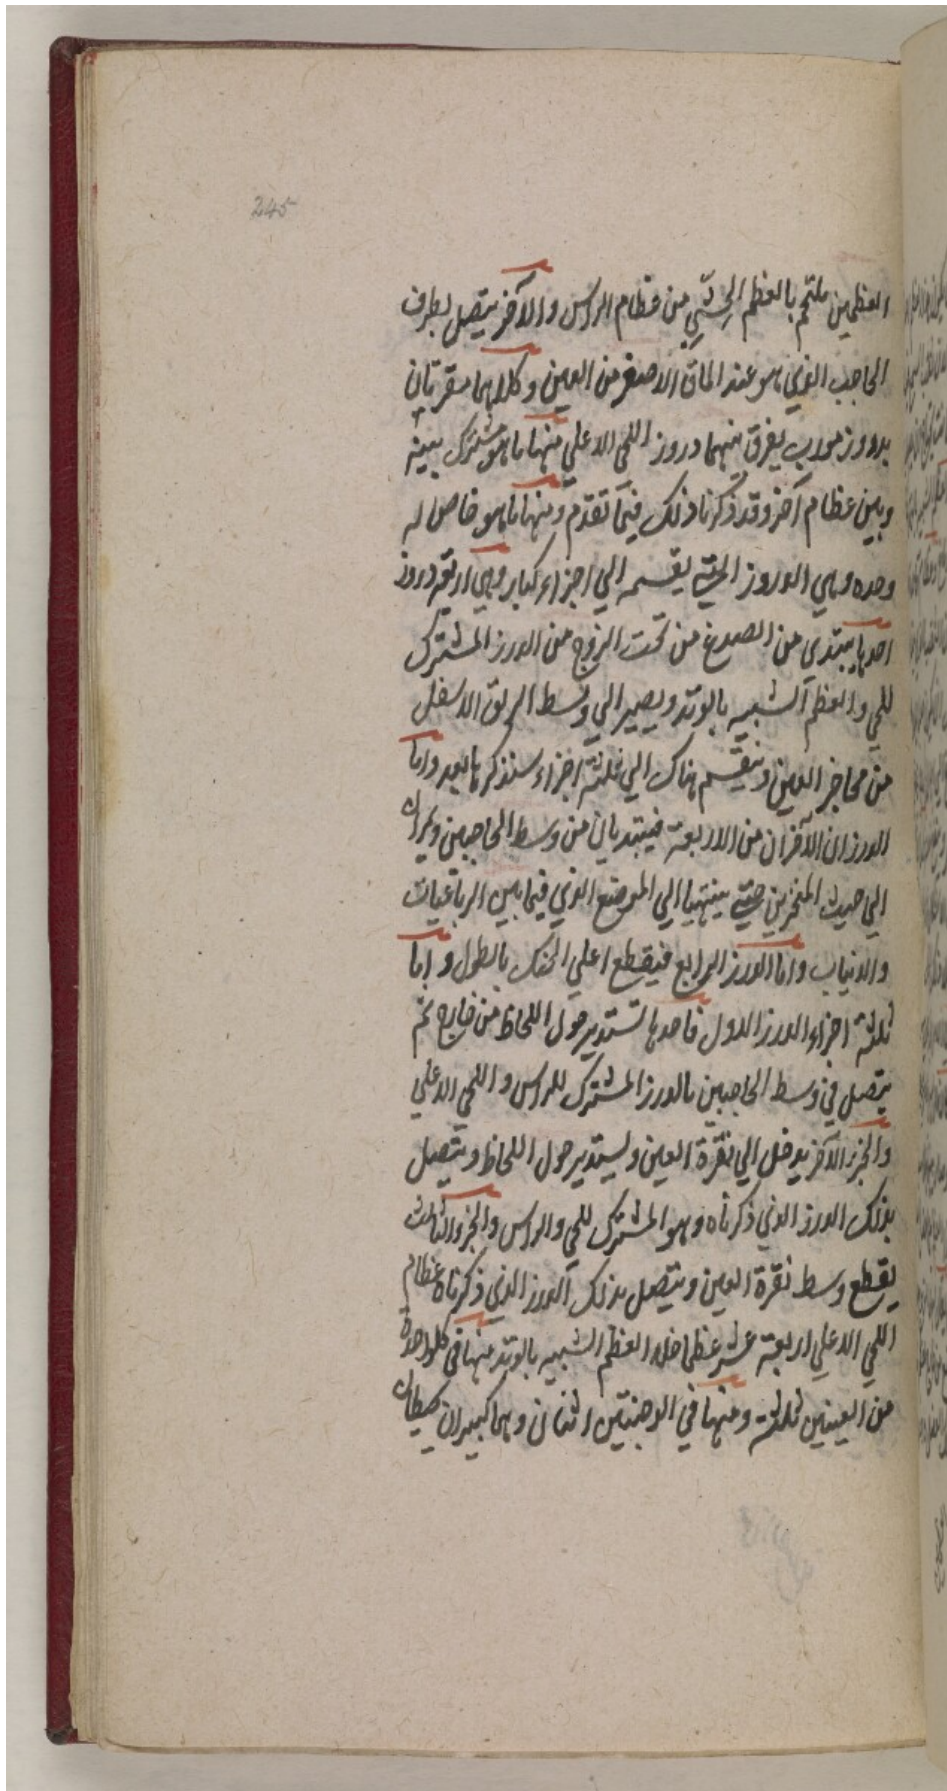 245
العظمين ملتحم بالعظم الحجري من عظام الراس والآخر يتصل بطرف
الحاجب الذي هو عند الماق الاصغر من العين وكلاهما مقرنان
بدروز مورب يفرق بينهما دروز اللحي الاعلي منها ما هو مشترك بينه
وبين عظام آخر وقد ذكرنا ذلك فيما تقدم ومنها ما هو خاص له
وحده وهي الدروز التي يقسمه الي اجزاء كبار وهي اربعة دروز
احدها يبتدي من الصدغ من تحت الزوج من الدرز المشترك
للحي والعظم الشبيه بالوتد ويصير الي وسط الاسفل
من محاجز العين وينقسم هناك الي ثلثة اجزاء سنذكرها بعد واما
الدرزان الآخران من الاربعة فيبتديان من وسط الحاجبين ويمران
الي حيث المنخرين حتي ينتهيا الي الموضع الذي فيما بين الرباعيات
والانياب واما الدرز الرابع فيقطع اعلي الحنك بالطول واما
ثلثة اجزاء الدرز الاول فاحدها تستدير حول اللحاظ من خارج ثم
يتصل في وسط الحاجبين بالدرز المشترك للراس واللحي الاعلي
والجزء الآخر يدخل الي نقرة العين ويستدير حول اللحاظ ويتصل
بذلك الدرز الذي ذكرناه وهو المشترك للحي والراس والجزو الثالث
يقطع وسط نقرة العين ويتصل بذلك الدرز الذي ذكرناه عظام
اللحي الاعلي اربعة عشر عظما خلا العظم الشبيه بالوتد منها في كل واحدة
من العينين ثلثة ومنها في الوجنتين اثنان وهما كبيران يحيطان